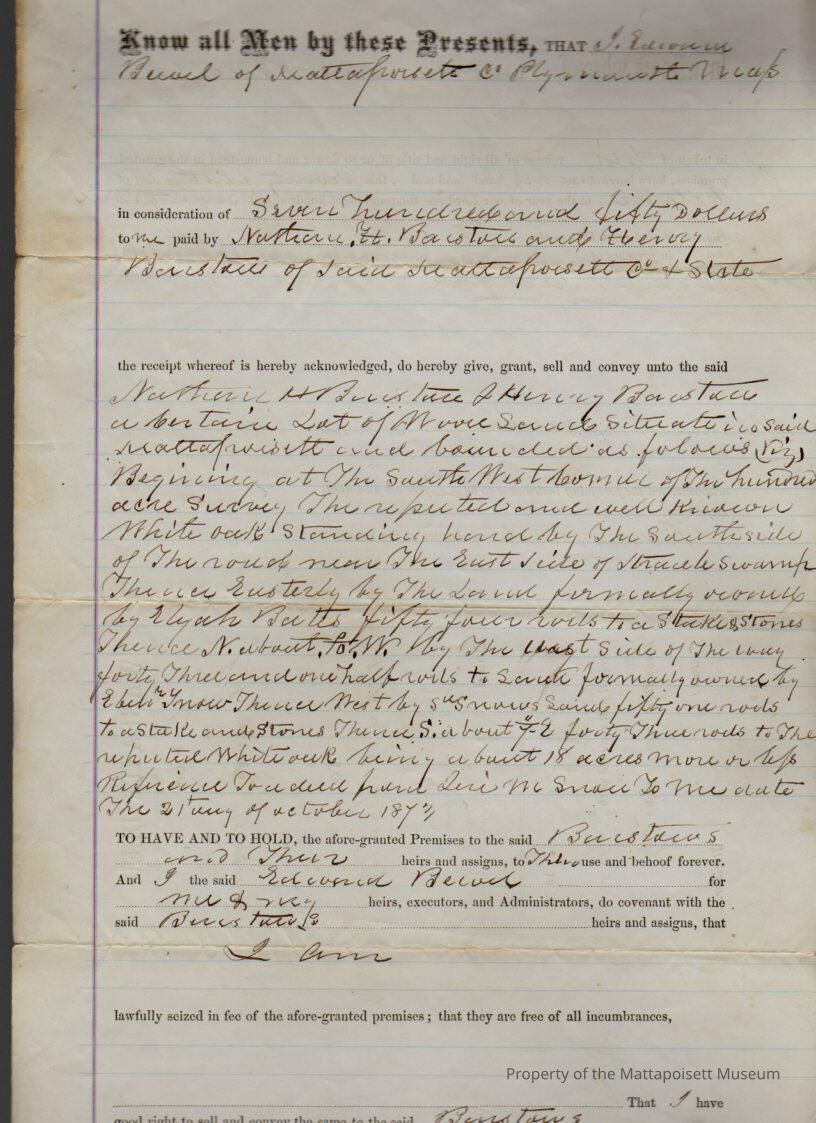 Know all Men by these Presents, THAT I. Edward
of Mattapoisett Co Plymouth Mass
in consideration of Seven hundred and fifty Dollars
to me paid by Nathan. H. Barstow and Henry
Barstow of Said Mattapoisett Co & State
the receipt whereof is hereby acknowledged, do hereby give, grant, sell and convey unto the said
Nathan H Barstow & Henry Barstow
a Certain Lot of Wood Land Situate in said
Mattapoisett and bounded as folows (Viz)
Begining at The South West Corner of The hundred
acre Survey The reputed and well Known
White oak Standing hard by The South side
of The road near The East Side of Swamp
Thence Easterly by The Land formally owned
by Elijah Batts fifty four rods to a Stake & Stones
Thence N. about W. by The west Side of The way
forty Three and one half rods to Land formally owned by
Ebenr Snow Thence West by sd Snows Land fifty one rods
to a Stake and Stones Thence S. about E forty Three rods to The
reputed White oak being about 18 acres more or less
Refrence To a deed from M Snow To Me date
The 21 day of october 187
TO HAVE AND TO HOLD, the afore-granted Premises to the said Barstows
and Their heirs and assigns, to Their use and behoof forever.
And I the said Edward for
me & my heirs, executors, and Administrators, do covenant with the
said Barstows heirs and assigns, that
I am
lawfully seized in fee of the afore-granted premises; that they are free of all incumbrances,
Property of the Mattapoisett Museum
That I have
good right to sell and convey the same to the said Barstows